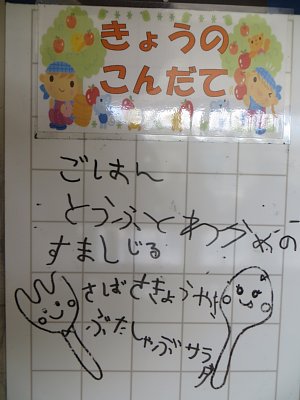 きょうの
こんだて
ごはん
とうふとわかめの
すましじる
さばさいきょうやき
ぶたしゃぶサラダ